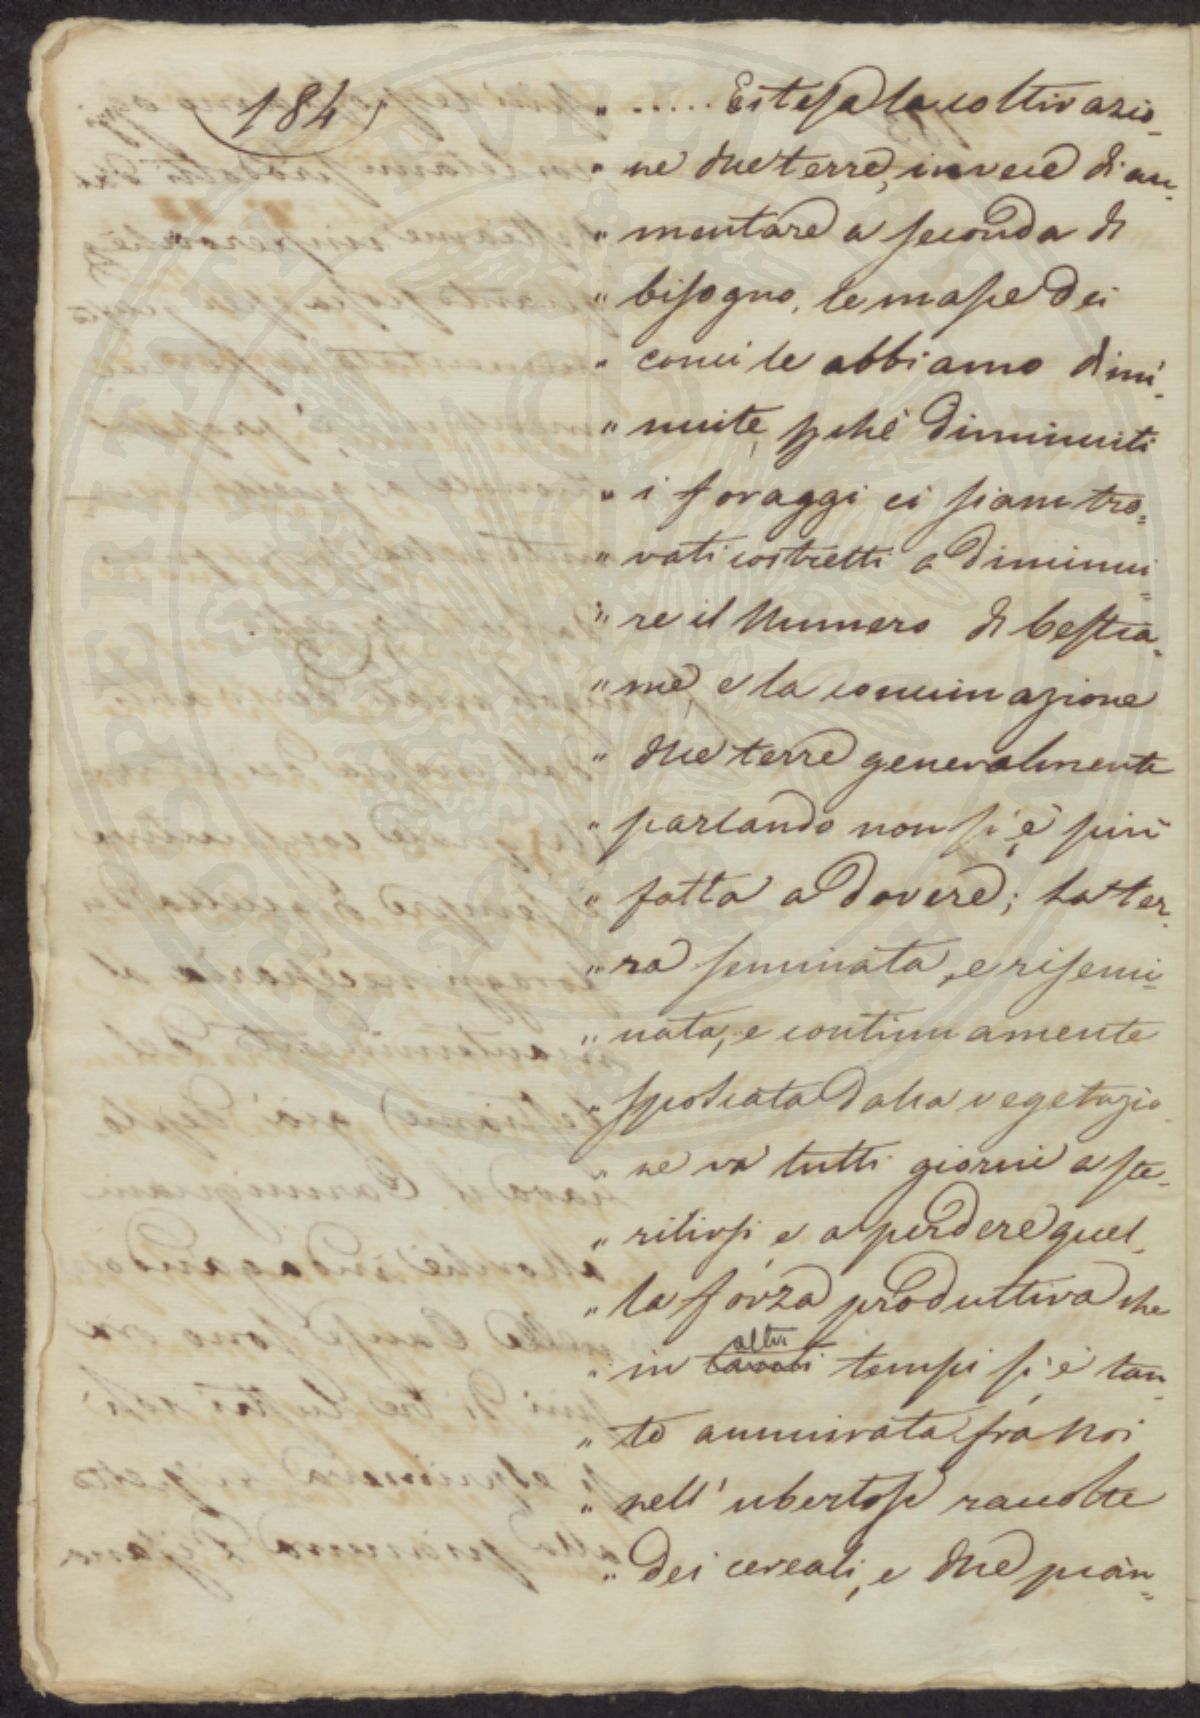 184
" ..... Estesa la coltivazio-
" ne d͞lle terre, invece di au-
" mentare a seconda di
" bisogno, le masse dei
" conci le abbiamo dimi-
" nuite, p̱chè diminuiti
" i foraggi ci siam tro-
" vati costretti a diminui-
" re il Numero di bestia-
" me, e la concimazione
" d͞lle terre generalmente
" parlando non si è più
" fatta a dovere; la ter-
" ra seminata, e risemi-
" nata, e continuamente
" spossata dalla vegetazio-
" ne va tutti giorni a ste-
" rilirsi e a perdere quel-
" la forza produttiva che
altri
" in tempi si è tan-
" to ammirata fra noi
" nell' ubertose raccolte
" dei cereali, e d͞lle pian-